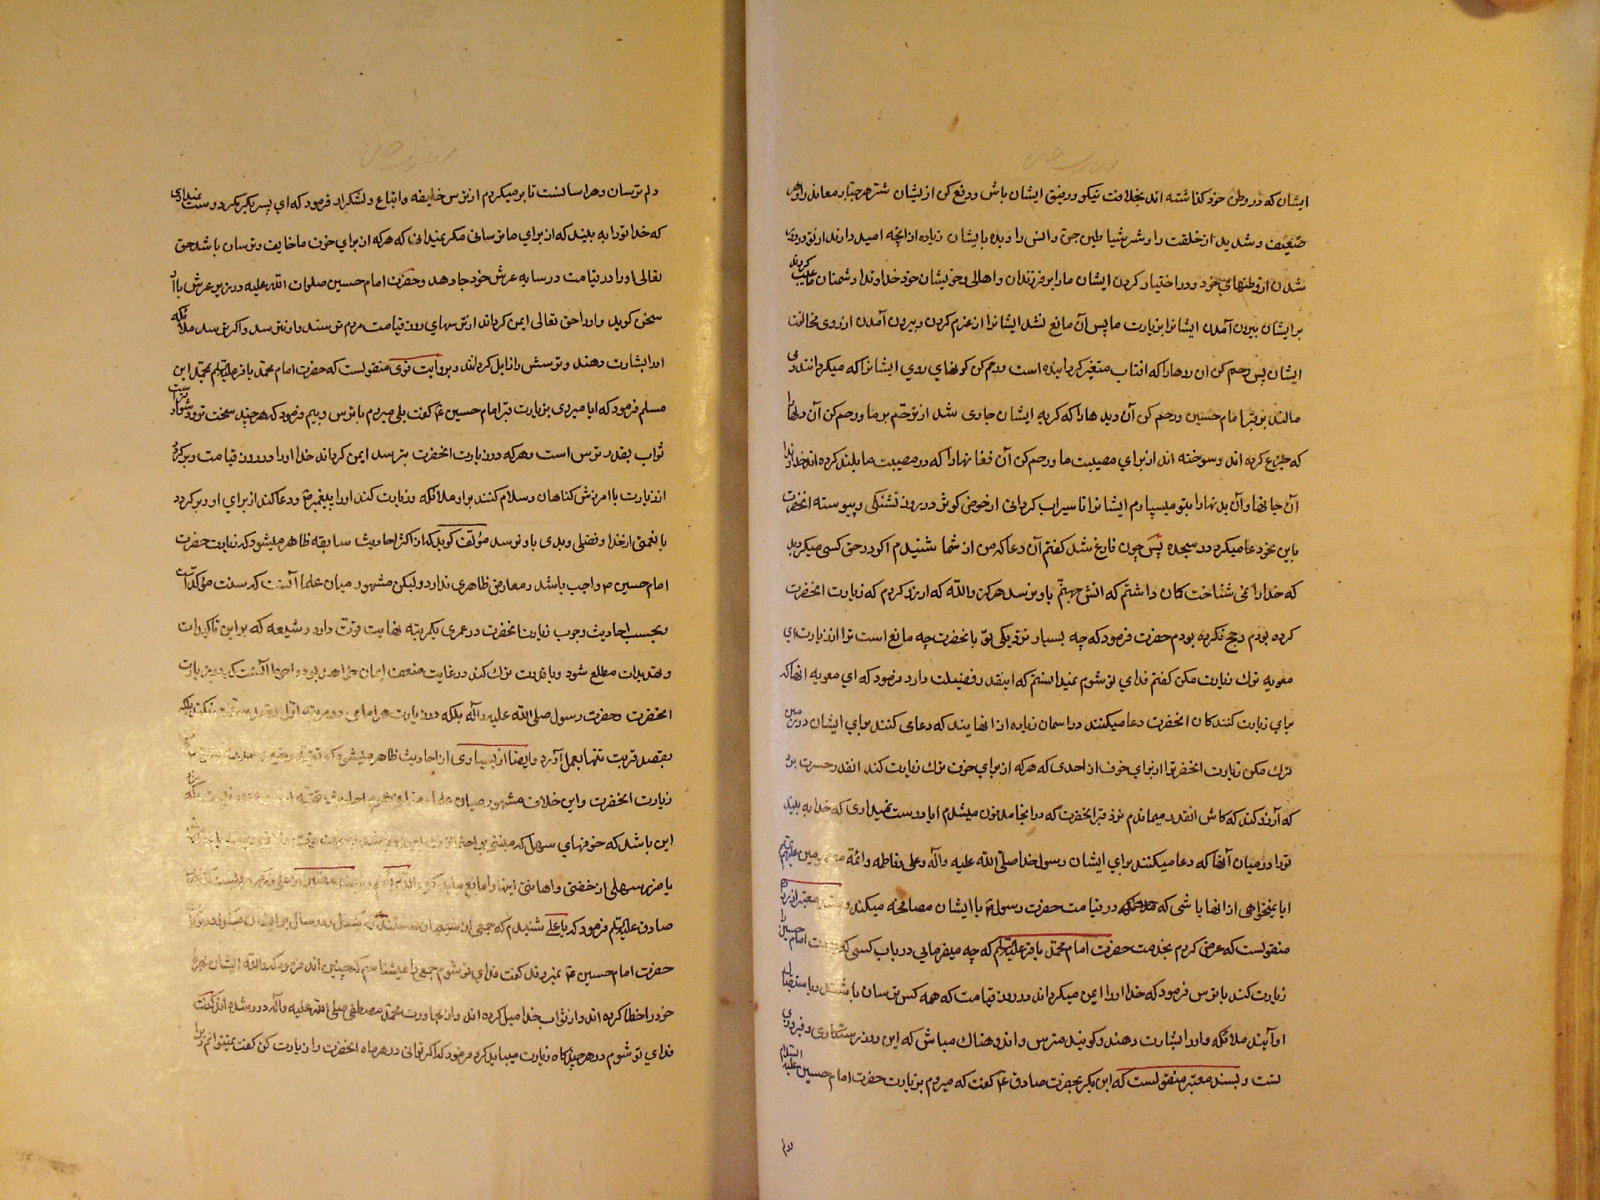 ایشان که در وطن خود گذاشته اند بخلافت نیکو و رفیق ایشان باش و دفع کن از ایشان شر هر جبار معاند را و هر
ضعیف و شدید از خلقت را و شر شیاطین جن و انس را و بده بایشان زیاده از آنچه امید دارند از تو در دور
شدن از وطنهای خود و در اختیار کردن ایشان ما را بر فرزندان و اهالی و خویشان خود خداوندا دشمنان ما عیب کردند
بر ایشان بیرون آمدن ایشانرا بزیارت ما پس آن مانع نشد ایشانرا از عزم کردن و بیرون آمدن از روی مخالفت
ایشان پس رحم کن آن روها را که افتاب متغیر گردانیده است و رحم کن گونهای روی ایشانرا که میگردانند و می
مالند بر قبر امام حسین و رحم کن آن دیدها را که گریه ایشان جاری شد از ترحم بر ما و رحم کن آن دلها را
که جزع کرده اند و سوخته اند از برای مصیبت ما و رحم کن آن فغانها را که در مصیبت ما بلند کرده اند خداوندا
آن جانها و آن بدنها را بتو میسپارم ایشانرا تا سیراب گردانی از حوض کوثر در روز تشنگی و پیوسته انحضرت
باین نحو دعا میکرد در سجده پس چون فارغ شد گفتم آن دعا که من از شما شنیدم اگر در حق کسی میکردید
که خدا را نمی شناخت گمان داشتم که آتش جهنم باو نرسد هرگز والله که ارزو کردم که زیارت انحضرت
کرده بودم و حج نکرده بودم حضرت فرمود که چه بسیار نزدیکی تو بانحضرت چه مانع است ترا از زیارت ای
معویه ترک زیارت مکن گفتم فدای تو شوم نمیدانستم که اینقدر فضیلت دارد فرمود که ای معویه انها که
برای زیارت کنندگان انحضرت دعا میکنند در اسمان زیاده از انهایند که دعا می کنند برای ایشان در زمین
ترک مکن زیارت انحضرترا از برای خوف از احدی که هر که از برای خوف ترک زیارت کند انقدر حسرت برد
که آرزو کند که کاش انقدر میماندم نزد قبر انحضرت که در انجا مدفون میشدم ایا دوست نمیداری که خدا به بیند
ترا در میان آنها که دعا میکنند برای ایشان رسول خدا صلی الله علیه و آله و علی و فاطمه و ائمه معصومین علیهم
ایا نمیخواهی از انها باشی که در قیامت حضرت رسول با ایشان مصافحه میکند
منقولست که عرض کردم بخدمت حضرت امام محمد باقر علیه السلم که چه میفرمایی در باب کسی که امام حسین را
زیارت کند با ترس فرمود که خدا او را ایمن میگرداند در روز قیامت که همه کس ترسان باشند و باستقبال
او آیند ملائکه و او را بشارت دهند و گویند مترس و اندوهناک مباش که این روز رستگاری و فیروزی
تست و بسند معتبر منقولست که ابن بکیر بحضرت صادق ع گفت که میروم بزیارت حضرت امام حسین علیه السلام
دلم
دلم ترسان و هراسانست تا بر میگردم از ترس خلیفه و اتباع و لشکر او فرمود که ای پسر بکیر مگر دوست نمیداری
که خدا ترا به بیند که از برای ما ترسانی مگر نمیدانی که هر که از برای خوف ما خایف و ترسان باشد حق
تعالی او را در قیامت در سایه عرش خود جا دهد و حضرت امام حسین صلوات الله علیه در زیر عرش با او
سخن گوید و او را حق تعالی ایمن گرداند از ترسهای روز قیامت مردم ترسند و او نترسد و اگر بترسد ملائکه
او را بشارت دهند و ترسش را زایل گردانند و بروایت قوی منقولست که حضرت امام محمد باقر علیه السلم بمحمد ابن
مسلم فرمود که ایا میروی بزیارت قبر امام حسین ع گفت بلی میروم با ترس و بیم فرمود که هر چند سخت تر و دشوارتر است
ثواب بقدر ترس است و هر که در زیارت انحضرت بترسد ایمن گرداند خدا او را در روز قیامت و بر گردد
از زیارت با امرزش گناهان و سلام کنند بر او ملائکه و زیارت کند او را پیغمبر ص و دعا کند از برای او و بر گردد
با نعمتی از خدا و فضلی و بدی باو نرسد مؤلف گوید که از اکثر احادیث سابقه ظاهر میشود که زیارت حضرت
امام حسین ع واجب باشد و معارض ظاهری ندارد و لیکن مشهور میان علما آنست که سنت مؤکد است
و بحسب احادیث وجوب زیارت انحضرت در عمری یکمرتبه نهایت قوت دارد و شیعه که بر این تاکیدات
و تهدیدات مطلع شود و با قدرت ترک کند در غایت ضعف ایمان خواهد بود و احوط آنست که در زیارت
انحضرت و حضرت رسول صلی الله علیه و آله بلکه در زیارت هر امامی در مرتبه اول قصد سنت نکند بلکه
بقصد قربت تنها بعمل آورد و ایضا از بسیاری از احادیث ظاهر میشود که
زیارت انحضرت و این خلاف مشهور میان علما
این باشد که خوفهای سهل که مبنی بر
یا ضرر سهلی از خفتی و اهانتی اینها را مانع
صادق علیه السلم فرمود که یا علی شنیدم که جمعی از شیعیان
حضرت امام حسین ع نمیروند گفت فدای تو شوم جمع را میشناسم که چنین اند فرمود که والله ایشان بهره
خود را خطا کرده اند و از ثواب خدا میل کرده اند و از مجاورت محمد مصطفی صلی الله علیه و آله دور شده اند گفت
فدای تو شوم در هر چند گاه زیارت میباید کرد فرمود که اگر توانی در هر ماه انحضرت را زیارت کن گفت نمیتوانم زیرا